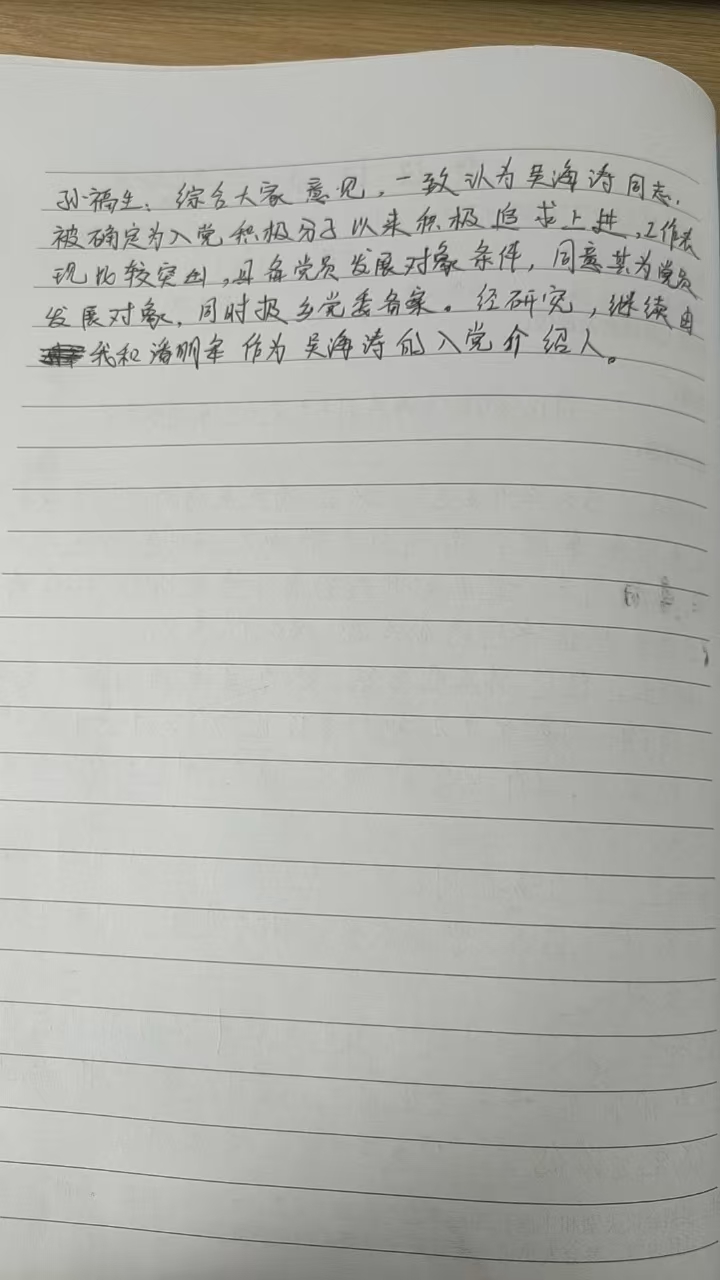 孙福生：综合大家意见，一致认为吴海涛同志，
被确定为入党积极分子以来积极追求上进，工作表
现比较突出，具备党员发展对象条件，同意其为党员
发展对象，同时报乡党委备案。经研究，继续由
我和潘明年作为吴海涛的入党介绍人。